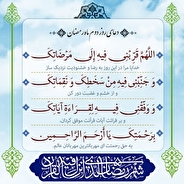 دعای روز دوم ماه رمضان
اللّهُمَّ قَرِّبْنِی فِیهِ إِلَی مَرْضَاتِکَ
خدایا مرا در این روز به رضا و خشنودیت نزدیک ساز
وَ جَنِّبْنِی فِیهِ مِنْ سَخَطِکَ وَ نَقِمَاتِکَ
و از خشم و غضبت دور کن
وَ وَفِّقْنِی فِیهِ لِقِرَاءَةِ آیَاتِکَ
و بر قرائت آیات قرآنت موفق گردان
بِرَحْمَتِکَ یَا أَرْحَمَ الرَّاحِمِینَ
به حق رحمتت ای مهربانترین مهربانان عالم
شهر رمضان الذی انزل فیه القرآن